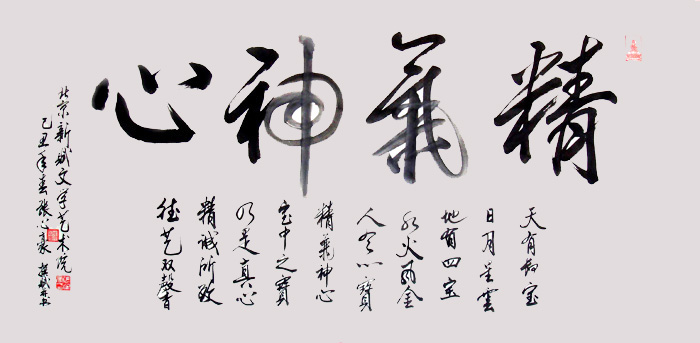 精氣神心
天有四宝
日月星雲
地有四宝
水火雨金
人有心寶
精氣神心
宝中之寶
乃是真心
精诚所致
德艺双馨
北京新斌文学艺术院
己丑年春張心豪